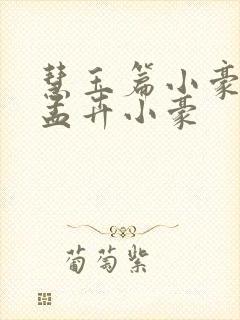 慧玉篇小豪
孟卉小豪
葡萄紫